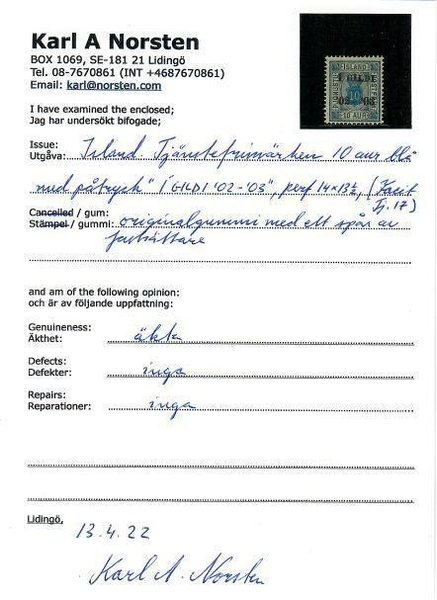 Karl A Norsten
BOX 1069, SE-181 21 Lidingö
Tel. 08-7670861 (INT +4687670861)
Email: karl@norsten.com
ÍSLAND
Í GILDI
10
'02-'03
10 AUR
I have examined the enclosed;
Jag har undersökt bifogade;
Issue:
Utgåva: Island Tjänstefrimärken 10 aur blå
med påtryck "Í GILDI '02-'03", perf 14x13½, (Facit
Tj. 17)
Cancelled / gum:
Stämpel / gummi: originalgummi med ett spår av
fasthäftare
and am of the following opinion:
och är av följande uppfattning:
Genuineness:
Äkthet: äkta
Defects:
Defekter: inga
Repairs:
Reparationer: inga
Lidingö,
13.4.22
Karl A. Norsten